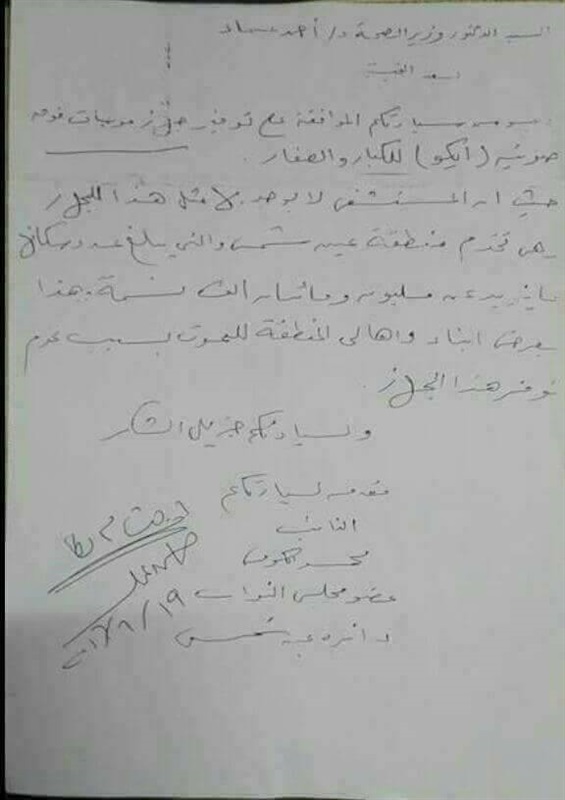 السيد الدكتور وزير الصحة د/ أحمد عماد
بعد التحية
سيادتكم الموافقة على توفير جهاز موجات فوق
صوتية (أيكو) للكبار والصغار.
حيث ان المستشفى لا يوجد بها مثل هذا الجهاز
وهى تخدم منطقة عين شمس والتي يبلغ عدد سكانها
ما يزيد عن مليون ومائتان الف نسمة. هذا
يعرض ابناء واهالى المنطقة للموت بسبب عدم
توفر هذا الجهاز.
ولسيادتكم جزيل الشكر
مقدمه لسيادتكم
النائب
محمد
عضو مجلس النواب
دائرة عين شمس